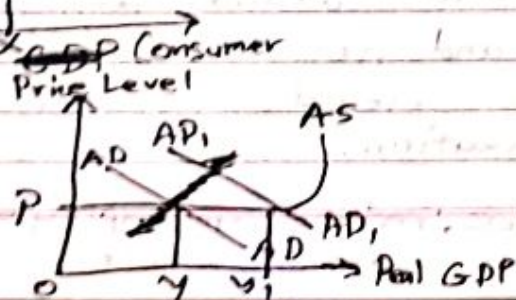 Consumer
Price Level
AS
AD AD₁
P
AD AD₁
O Y Y₁ Real GDP